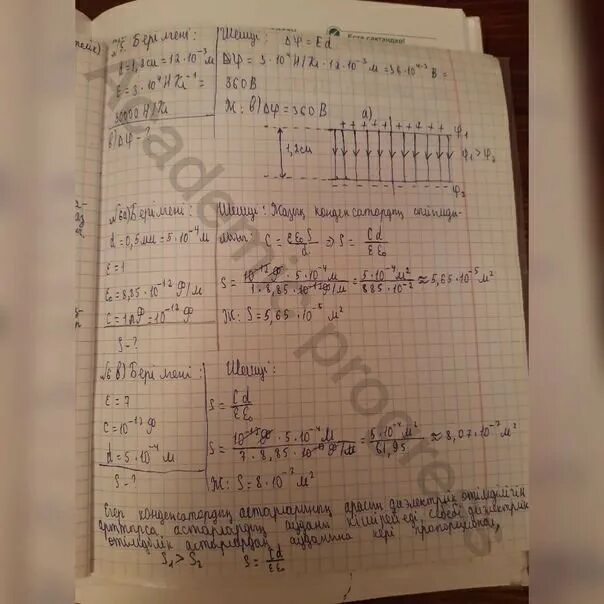 Есте сақтаңдар!
№5. Берілгені:
d = 1,2см = 12·10⁻³ м
E = 3·10⁴ Н Кл⁻¹ =
30000 Н/Кл
в) Δφ - ?
Шешуі: Δφ = Ed
Δφ = 3·10⁴ Н/Кл · 12·10⁻³ м = 36·10⁴⁻³ В =
360 В
Ж: в) Δφ = 360 В
а)
+ + + + + + + + + φ₁
1,2см
φ₁ > φ₂
φ₂
№6а) Берілгені:
d = 0,5мм = 5·10⁻⁴ м
ε = 1
ε₀ = 8,85·10⁻¹² Ф/м
C = 1пФ = 10⁻¹² Ф
S - ?
Шешуі: Жазық конденсатордың сыйымды-
лығы C = εε₀S/d ⇒ S = Cd/εε₀
S = 10⁻¹² Ф · 5·10⁻⁴ м / 1·8,85·10⁻¹² Ф/м = 5·10⁻⁴ м² / 885·10⁻² ≈ 5,65·10⁻⁵ м²
Ж: S = 5,65·10⁻⁵ м²
№6 в) Берілгені:
ε = 7
C = 10⁻¹² Ф
d = 5·10⁻⁴ м
S - ?
Шешуі:
S = Cd/εε₀
S = 10⁻¹² Ф · 5·10⁻⁴ м / 7·8,85·10⁻¹² Ф/м = 5·10⁻⁴ м² / 61,95 ≈ 8,07·10⁻⁷ м²
Ж: S = 8·10⁻⁷ м²
Егер конденсатордың астарларының арасын диэлектрик өтімділігін
арттырса астарлардың ауданы кішірейеді себебі диэлектрик
өтімділік астарлардың ауданына кері пропорционал,
S₁ > S₂ S = Cd/εε₀